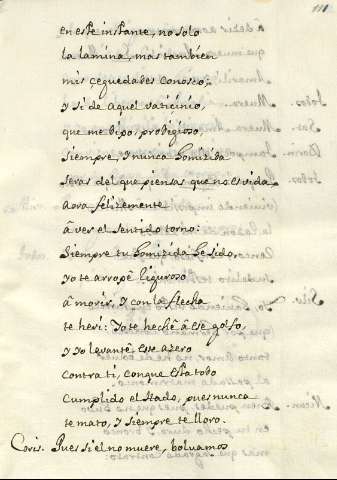 111
en este instante, no solo
la lamina, mas tambien
mis çeguedades conosco;
y si de aquel vaticinio,
que me dijo, prodigioso,
siempre, y nunca homizida
seras del que piensas que no es vida
aora felizemente
â ver el sentido torno:
siempre tu homizida he sido,
yo te arrojê riguroso
â morir, y con la flecha
te herî: yo te hechê â ese golfo,
y yo levantê este azero
contra ti, conque esta todo
cumplido el Hado, pues nunca
te mato, y siempre te lloro.
Coris. Pues si el no muere, bolvamos